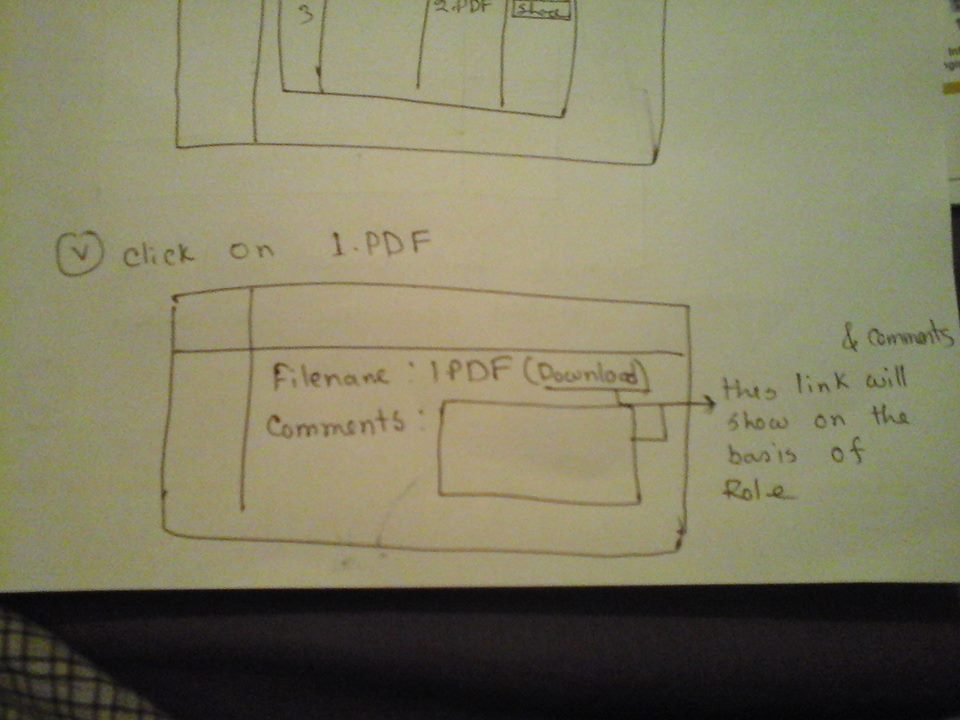 3 2.PDF Show
V click on 1.PDF
Filename : 1.PDF (Download)
Comments :
& comments
this link will
show on the
basis of
Role